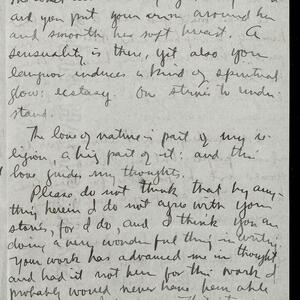 and you put your arm around her
and smooth her soft breast. A
sensuality is there, yet also your
languor induces a kind of spiritual
glow: ecstasy. One strives to under-
stand.
The love of nature is part of my re-
ligion, a big part of it: and this
love guides my thoughts.
Please do not think that by any-
thing herein I do not agree with your
stories, for I do, and I think you are
doing a very wonderful thing in writing
your work has advanced me in thought
and had it not been for this work I
probably would never have been able